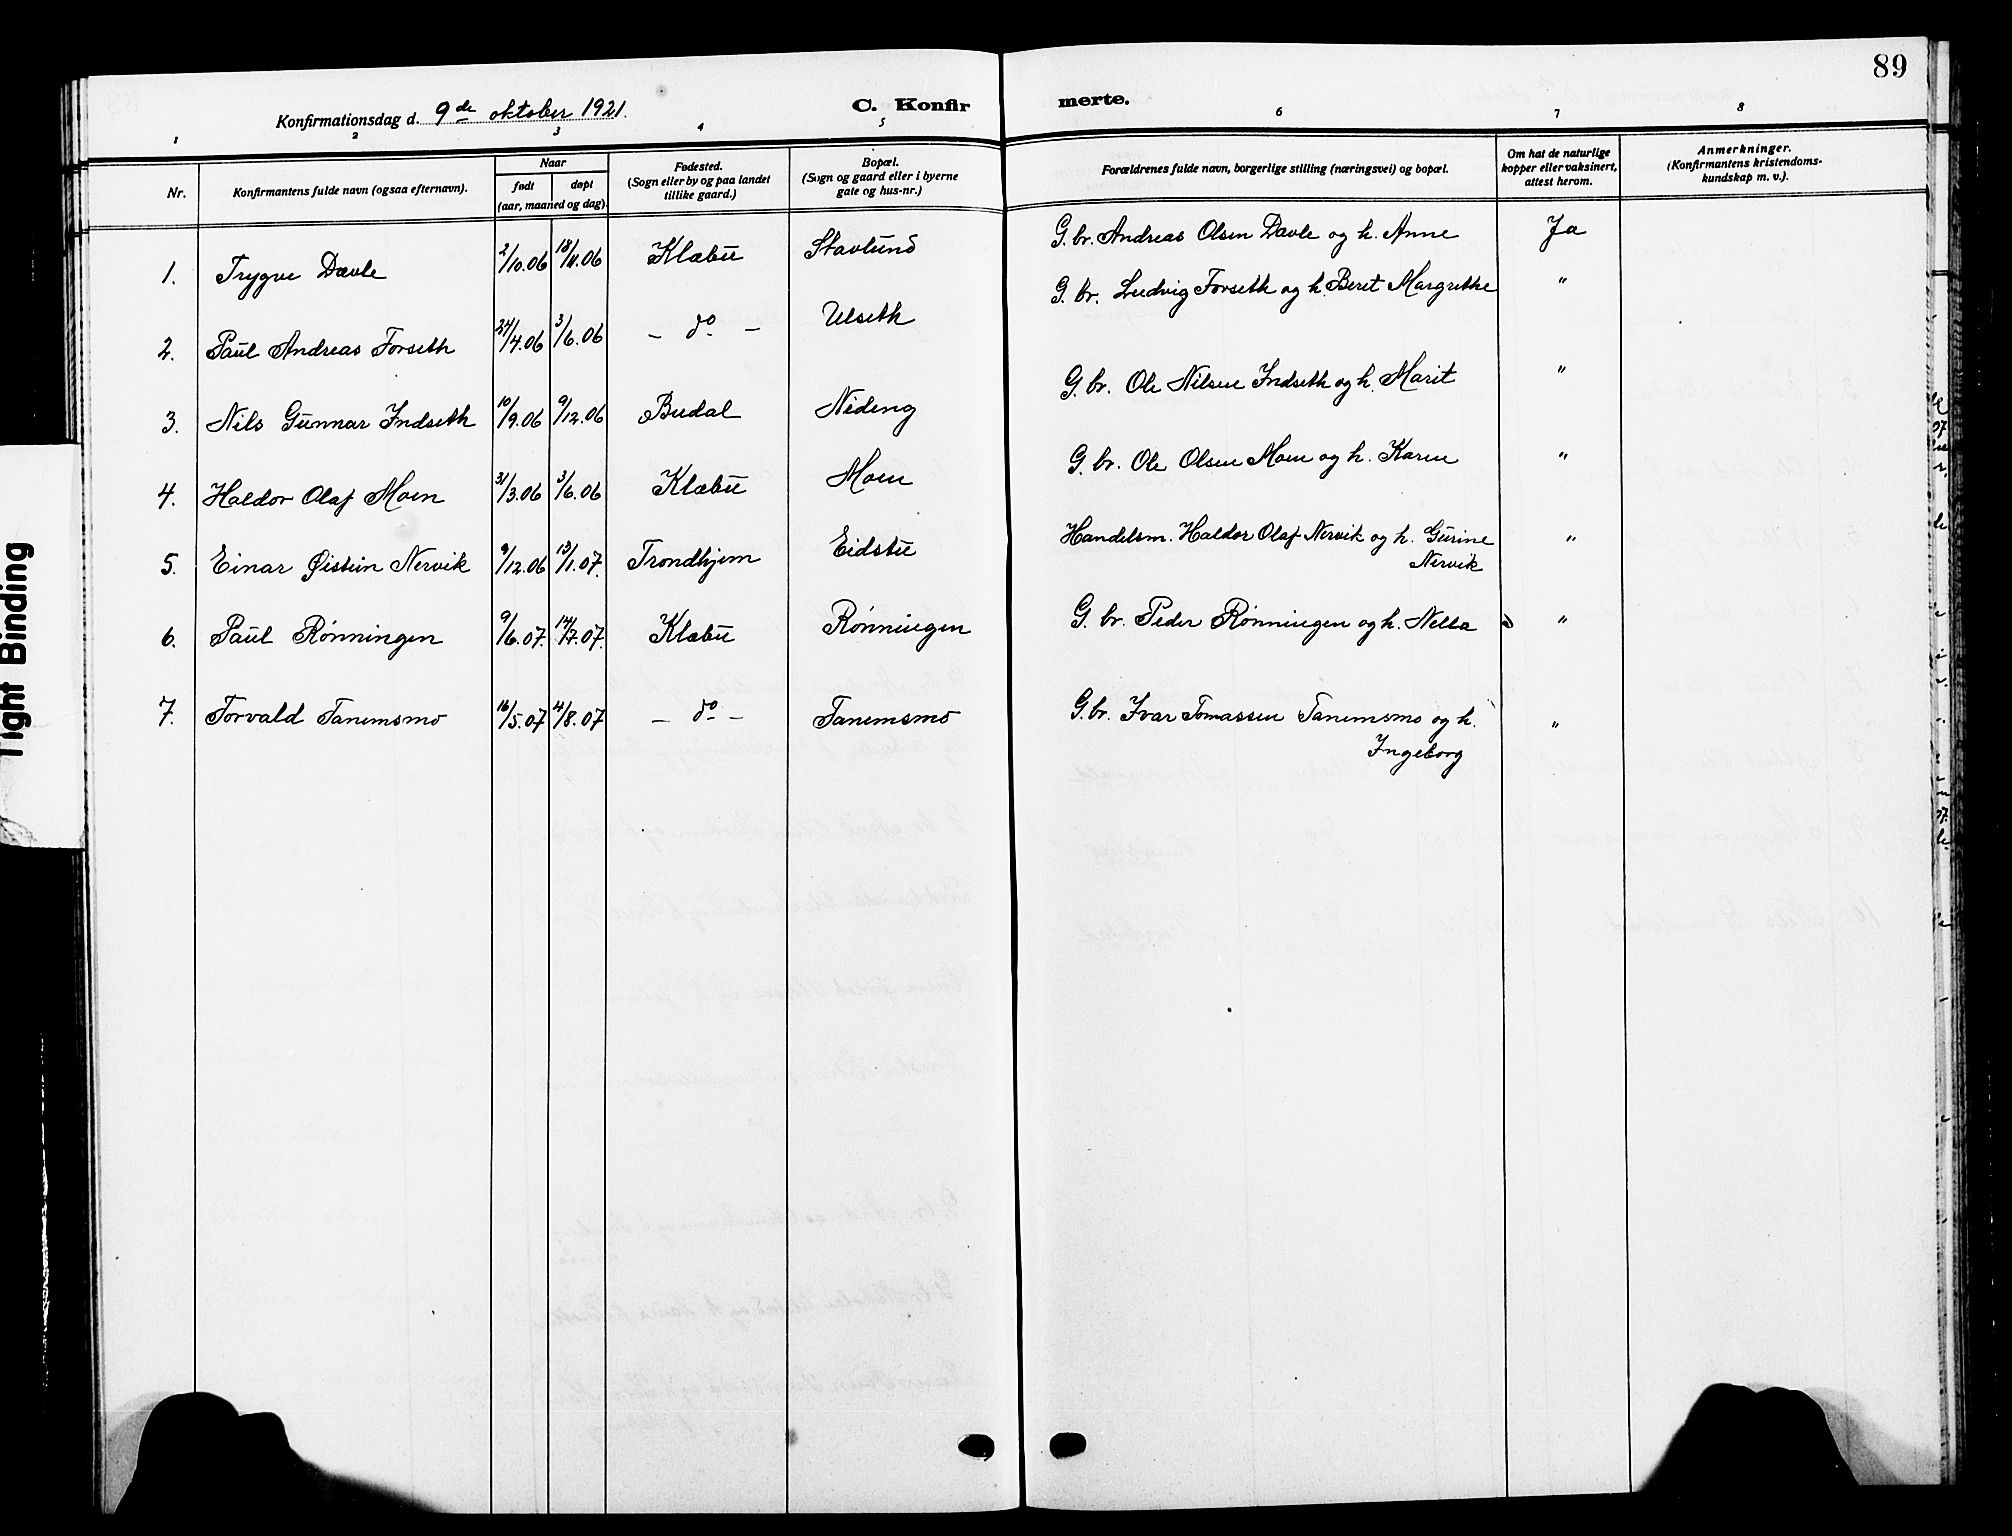 89
Konfirmationsdag d. 9de oktober 1921.
C. Konfirmerte.
1 2 3 4 5 6 7 8
Nr. Konfirmantens fulde navn (ogsaa efternavn). Naar født døpt (aar, maaned og dag). Fødested. (Sogn eller by og paa landet tillike gaard.) Bopæl. (Sogn og gaard eller i byerne gate og hus-nr.) Forældrenes fulde navn, borgerlige stilling (næringsvei) og bopæl. Om hat de naturlige kopper eller vaksinert, attest herom. Anmerkninger. (Konfirmantens kristendoms-kundskap m. v.).
1. Trygve Davle 2/10.06 18/11.06 Klæbu Stavlund G. br. Andreas Olsen Davle og h. Anne Ja
2. Paul Andreas Forseth 24/4.06 3/6.06 – do – Ulseth G. br. Ludvig Forseth og h. Beret Margrethe "
3. Nils Gunnar Indseth 10/9.06 9/12.06 Budal Nideng G. br. Ole Nilsen Indseth og h. Marit "
4. Haldor Olaf Moen 31/3.06 3/6.06 Klæbu Moen G. br. Ole Olsen Moen og h. Karen "
5. Einar Øistein Nervik 9/12.06 13/1.07. Trondhjem Eidstu Handelsm. Haldor Olaf Nervik og h. Gurine "
Nervik
6. Paul Rønningen 9/6.07. 14/7.07. Klæbu Rønningen G. br. Peder Rønningen og h. Nella "
7. Torvald Tanemsmo 16/5.07 4/8.07 – do – Tanemsmo G. br. Ivar Tomassen Tanemsmo og h. "
Ingeborg
Tight Binding